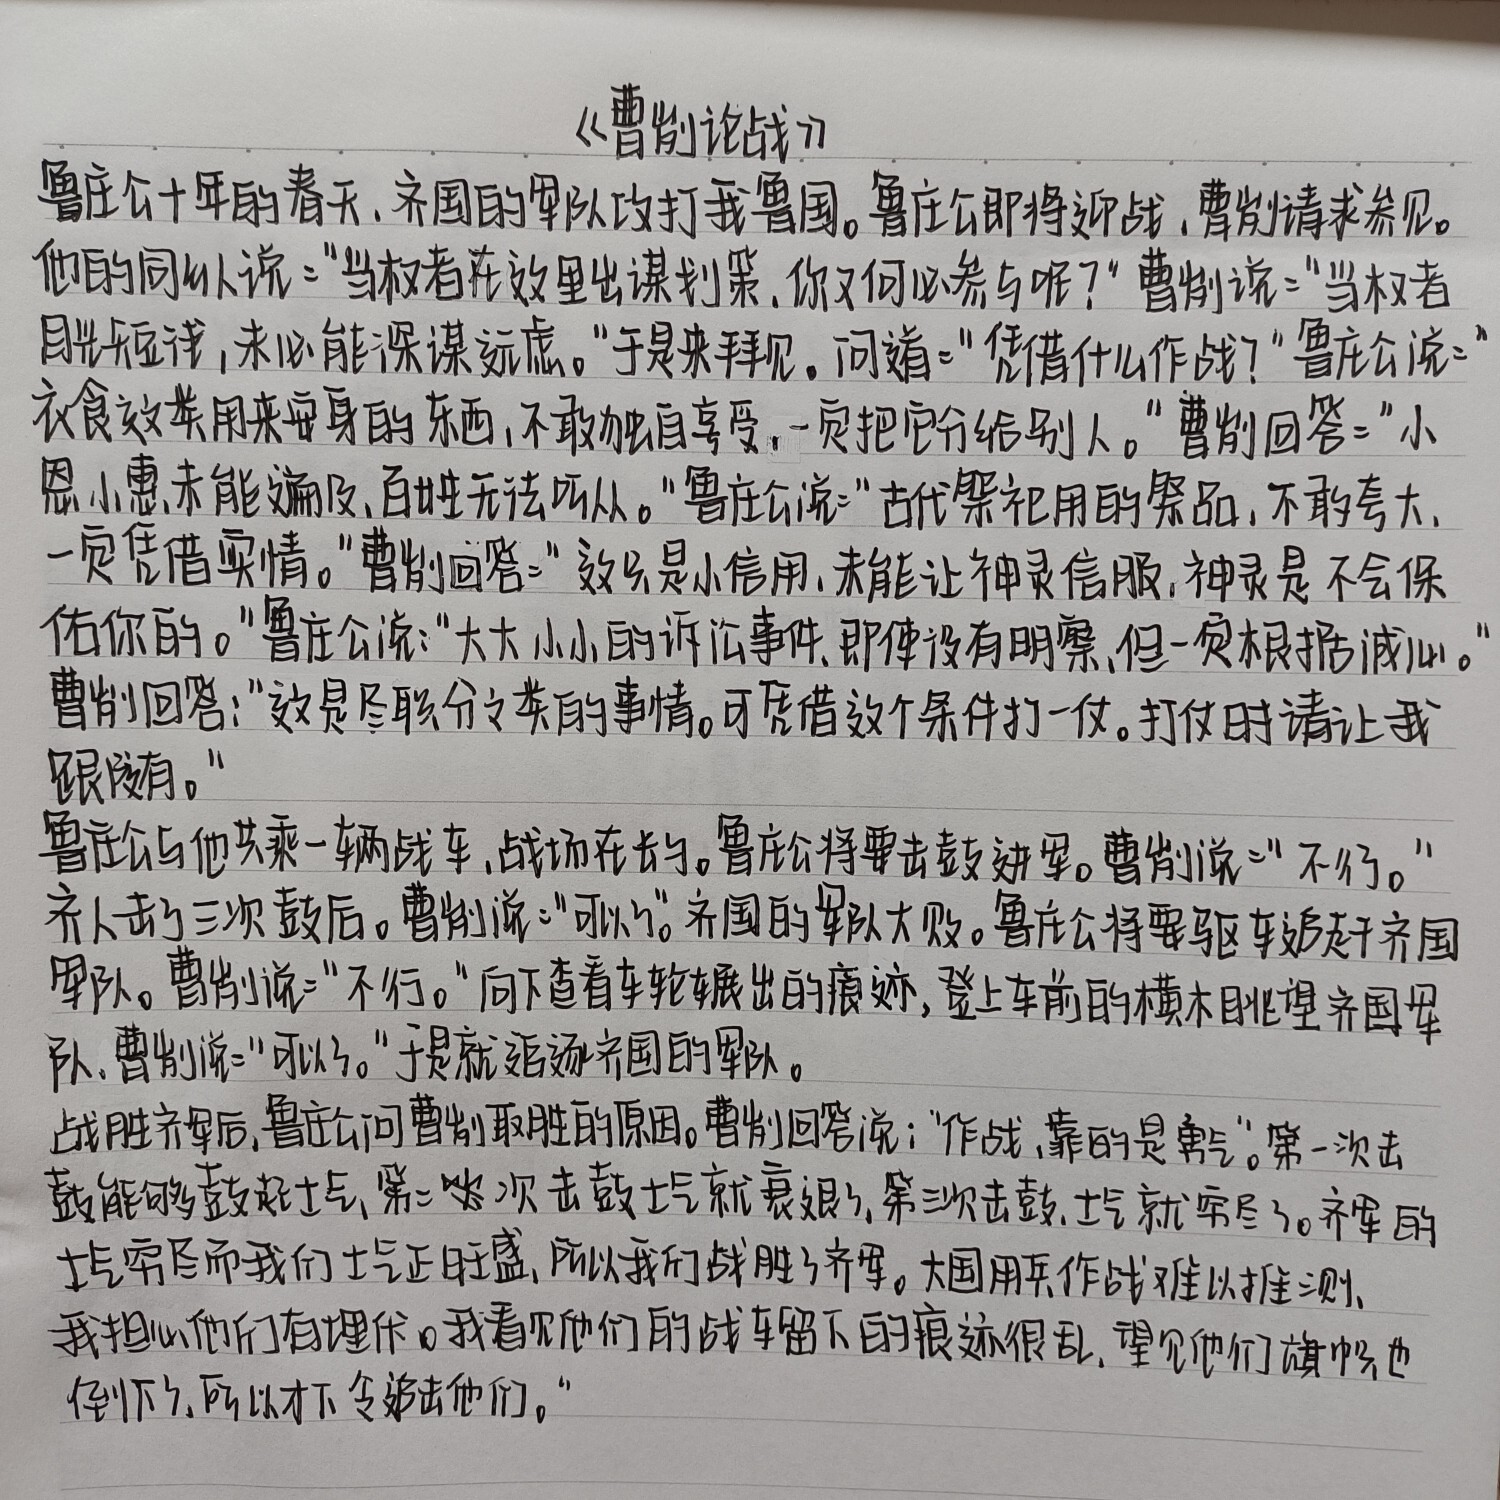 《曹刿论战》
鲁庄公十年的春天,齐国的军队攻打我鲁国。鲁庄公即将迎战,曹刿请求参见。
他的同乡人说:"当权者在这里出谋划策,你又何必参与呢?"曹刿说:"当权者
目光短浅,未必能深谋远虑。"于是来拜见。问道:"凭借什么作战?"鲁庄公说:"
衣食这类用来安身的东西,不敢独自享受,一定把它分给别人。"曹刿回答:"小
恩小惠未能遍及,百姓无法听从。"鲁庄公说:"古代祭祀用的祭品,不敢夸大,
一定凭借实情。"曹刿回答:"这只是小信用,未能让神灵信服,神灵是不会保
佑你的。"鲁庄公说:"大大小小的诉讼事件,即使没有明察,但一定根据诚心。"
曹刿回答:"这是尽职分之类的事情。可凭借这个条件打一仗。打仗时请让我
跟随着。"
鲁庄公与他共乘一辆战车,战场在长勺。鲁庄公将要击鼓进军。曹刿说:"不行。"
齐人击了三次鼓后。曹刿说:"可以了"。齐国的军队大败。鲁庄公将要驱车追赶齐国
军队。曹刿说:"不行。"向下查看车轮辗出的痕迹,登上车前的横木眺望齐国军
队,曹刿说:"可以了。"于是就追逐齐国的军队。
战胜齐军后,鲁庄公问曹刿取胜的原因。曹刿回答说:"作战,靠的是勇气"。第一次击
鼓能够鼓起士气,第二次击鼓士气就衰退了,第三次击鼓,士气就穷尽了。齐军的
士气穷尽而我们士气正旺盛,所以我们战胜了齐军。大国用兵作战难以推测,
我担心他们有埋伏。我看见他们的战车留下的痕迹很乱,望见他们旗帜也
倒下了,所以才下令追击他们。"